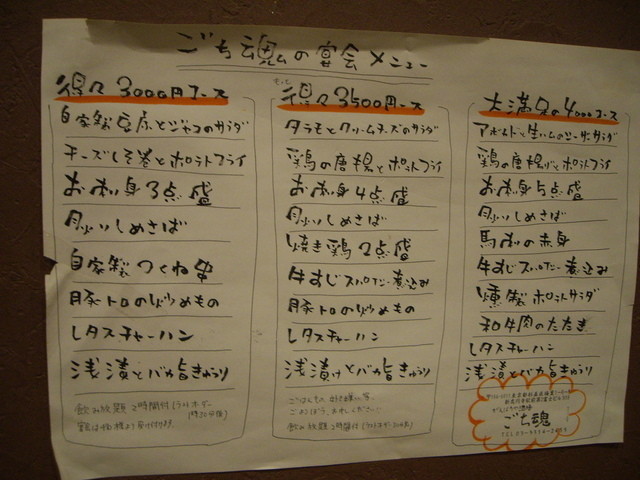 ごち魂の宴会メニュー
得々3000円コース
自家製豆腐とジャコのサラダ
チーズしそ巻とポテトフライ
お刺身3点盛
炙りしめさば
自家製つくね串
豚トロの炒めもの
レタスチャーハン
浅漬とバカ旨きゅうり
飲み放題2時間付(ラストオーダー
もっと
得々3500円コース
タラモとクリームチーズのサラダ
鶏の唐揚とポテトフライ
お刺身4点盛
炙りしめさば
焼き鶏2点盛
牛すじスパイシー煮込み
豚トロの炒めもの
レタスチャーハン
浅漬けとバカ旨きゅうり
飲み放題2時間付(ラストオーダー
大満足の4000コース
アボカドと生ハムのシーザーサラダ
鶏の唐揚げとポテトフライ
お刺身5点盛
炙りしめさば
馬刺の赤身
牛すじスパイシー煮込み
燻製ポテトサラダ
和牛肉のたたき
レタスチャーハン
浅漬とバカ旨きゅうり
ごち魂